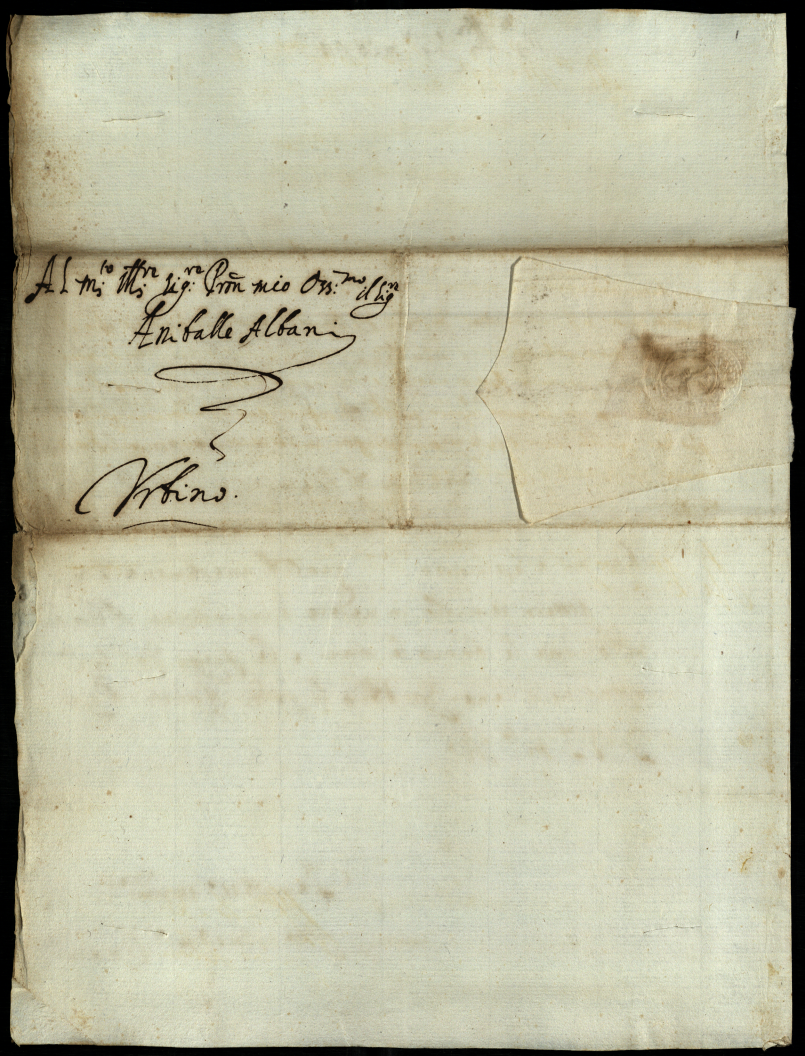 Al m:to Ill:re Sig:re Pron mio Oss:mo il Sig:r
Aniballe Albani
Urbino.